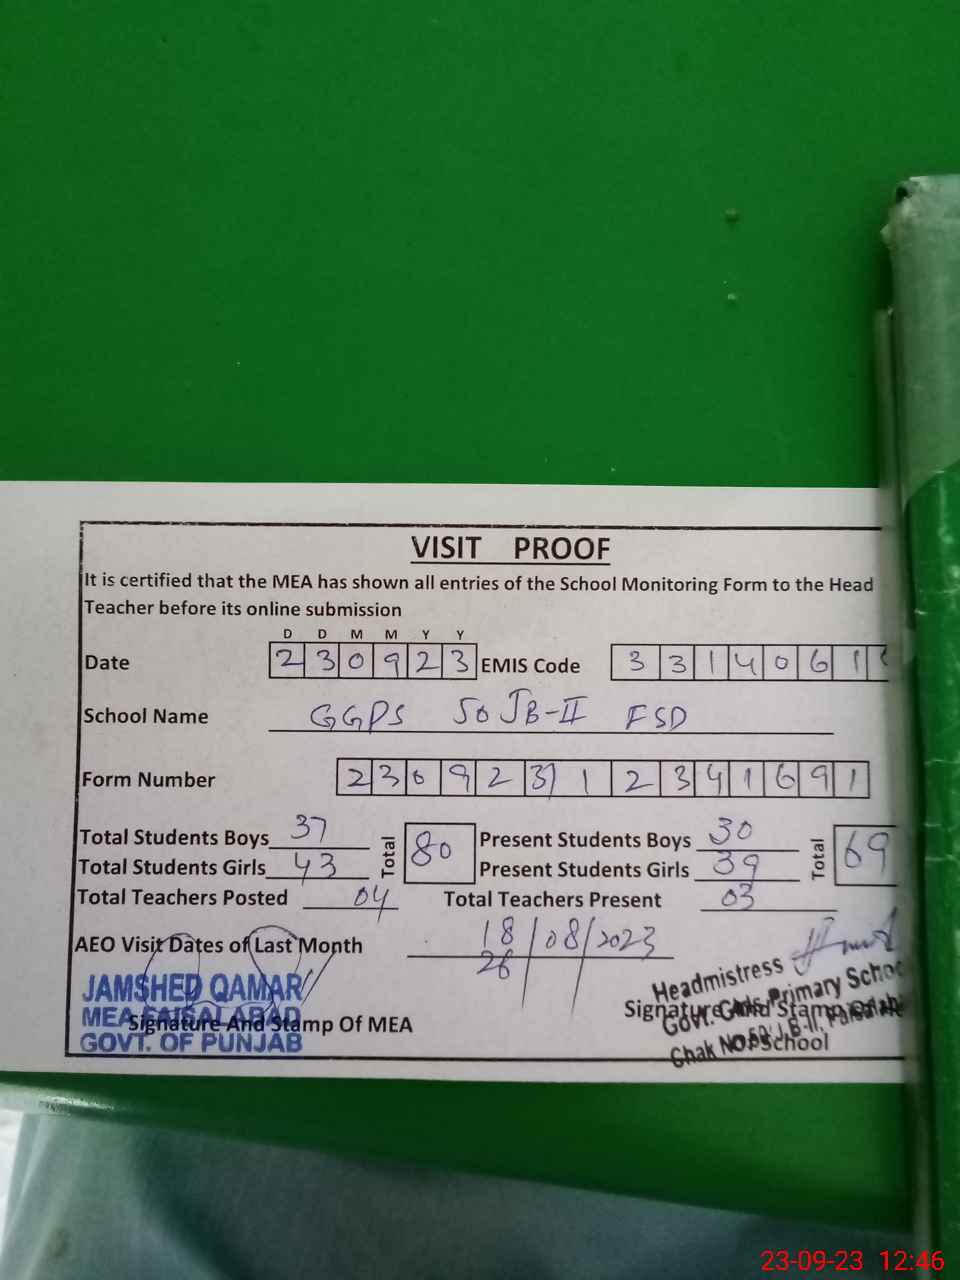 VISIT PROOF
It is certified that the MEA has shown all entries of the School Monitoring Form to the Head
Teacher before its online submission
D D M M Y Y
Date 2 3 0 9 2 3 EMIS Code 3 3 1 4 0 6 1
School Name GGPS 50 JB-II FSD
Form Number 2 3 0 9 2 3 1 2 3 4 1 6 9 1
Total Students Boys 37 Total 80 Present Students Boys 30 Total 69
Total Students Girls 43 Present Students Girls 39
Total Teachers Posted 04 Total Teachers Present 03
AEO Visit Dates of Last Month 18/08/2023
26
JAMSHED QAMAR
MEA FAISALABAD
GOVT. OF PUNJAB
Signature And Stamp Of MEA
Headmistress
Govt. Girls Primary Schoo
Chak No.50 J.B-II, Faisalab
Signature And Stamp of
School
23-09-23 12:46